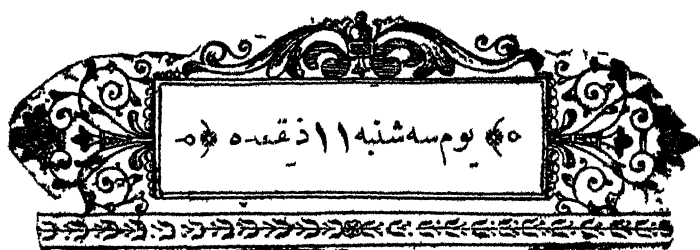 یوم سه شنبه ۱۱ ذیقعده